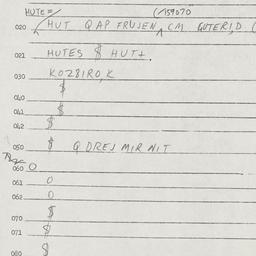 HUTE=/ (/159070
020 HUT QAP FRUJEN, CM GUTERI,D (
021 HUTES $ HUT+.
030 KOZBIRO,K
$
040
041 $
042 $
050 $ QDREJ MIR NIT
060 O
061 O
062 O
$
070
071 $
080 $